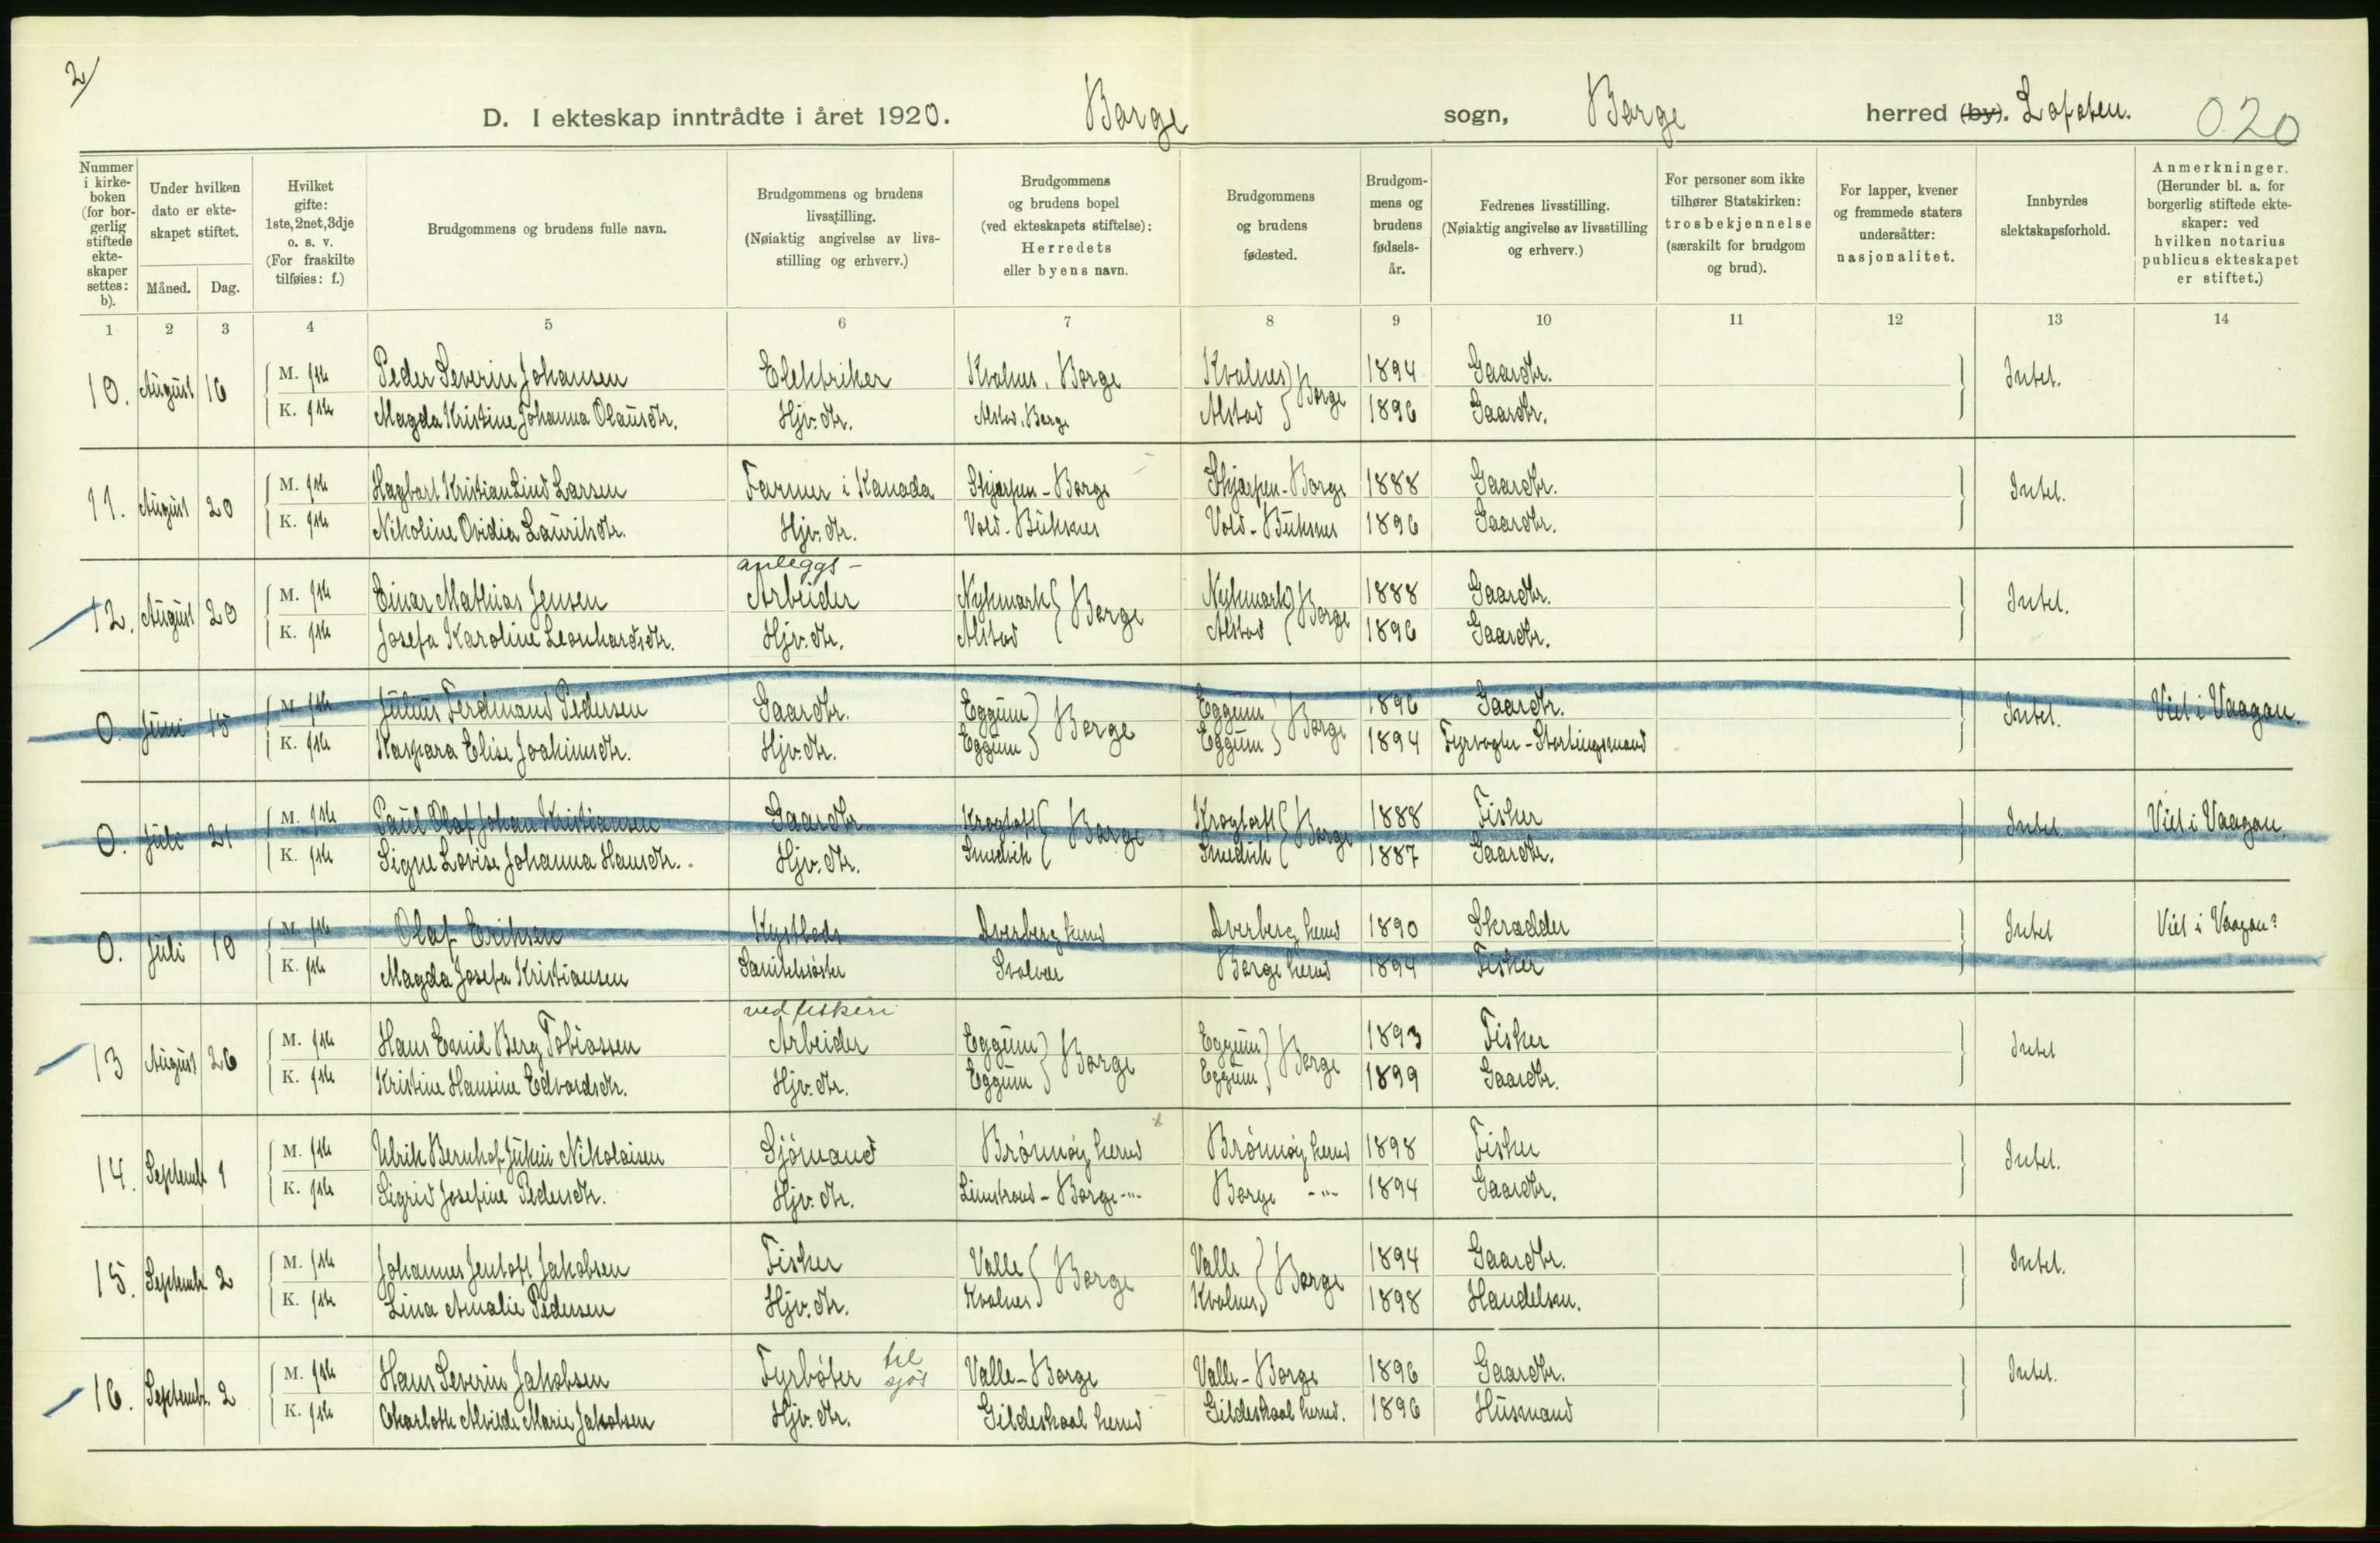 2/
D. I ekteskap inntrådte i året 1920. Borge sogn, Borge herred (by). Lofoten. 020
Nummer i kirkeboken (for borgerlig stiftede ekteskaper settes: b).
Under hvilken dato er ekteskapet stiftet.
Måned. Dag.
Hvilket gifte: 1ste, 2net, 3dje o. s. v. (For fraskilte tilføies: f.)
Brudgommens og brudens fulle navn.
Brudgommens og brudens livsstilling. (Nøiaktig angivelse av livsstilling og erhverv.)
Brudgommens og brudens bopel (ved ekteskapets stiftelse): Herredets eller byens navn.
Brudgommens og brudens fødested.
Brudgommens og brudens fødselsår.
Fedrenes livsstilling. (Nøiaktig angivelse av livsstilling og erhverv.)
For personer som ikke tilhører Statskirken: trosbekjennelse (særskilt for brudgom og brud).
For lapper, kvener og fremmede staters undersåtter: nasjonalitet.
Innbyrdes slektskapsforhold.
Anmerkninger. (Herunder bl. a. for borgerlig stiftede ekteskaper: ved hvilken notarius publicus ekteskapet er stiftet.)
1 2 3 4 5 6 7 8 9 10 11 12 13 14
10. August 16 M. 1ste Peder Severin Johansen Elektriker Kvalnes, Borge Kvalnes } Borge 1894 Gaardbr. Intet.
K. 1ste Magda Kristine Johanna Olausdtr. Hjv. dtr. Alstad, Borge Alstad 1896 Gaardbr.
11. August 20 M. 1ste Hagbart Kristian Lind Larsen Farmer i Kanada Skjerpen - Borge Skjerpen - Borge 1888 Gaardbr. Intet.
K. 1ste Nikoline Ovidia Lauritsdtr. Hjv. dtr. Vold - Buksnes Vold - Buksnes 1896 Gaardbr.
anleggs-
12. August 20 M. 1ste Einar Mathias Jensen Arbeider Nykmark } Borge Nykmark } Borge 1888 Gaardbr. Intet.
K. 1ste Josefa Karoline Leonhardsdtr. Hjv. dtr. Alstad Alstad 1896 Gaardbr.
0. Juni 15 M. 1ste Julius Ferdinand Pedersen Gaardbr. Eggum } Borge Eggum } Borge 1896 Gaardbr. Intet. Viet i Vaagan.
K. 1ste Kaspara Elise Joakimsdtr. Hjv. dtr. Eggum Eggum 1894 Fyrvogter - Stortingsmand
0. Juli 21 M. 1ste Paul Olaf Johan Kristiansen Gaardbr } Borge } Borge 1888 Fisker Intet. Viet i Vaagan.
K. 1ste Signe Lovise Johanna Hansdtr. Hjv. dtr. Smedvik Smedvik 1887 Gaardbr.
0. Juli 10 M. 1ste Olaf Eriksen Kystlods Dverberg herred Dverberg herred 1890 Skrædder Intet Viet i Vaagan?
K. 1ste Magda Josefa Kristiansen Sanitetssøster Svolvær Borge herred 1894 Fisker
ved fiskeri
13 August 26 M. 1ste Hans Emil Berg Tobiassen Arbeider Eggum } Borge Eggum } Borge 1893 Fisker Intet
K. 1ste Kristine Hansine Edvardsdtr. Hjv. dtr. Eggum Eggum 1899 Gaardbr.
14. Septembr 1 M. 1ste Ulrik Bernhof Nikolaisen Sjömand Brönnöy herred Brönnöy herred 1898 Fisker Intet.
K. 1ste Sigrid Josefine Pedersdtr. Hjv. dtr. Limstrand - Borge -"- Borge -"- 1894 Gaardbr.
15. Septembr. 2 M. 1ste Johannes Jentoft Jakobsen Fisker Valle } Borge Valle } Borge 1894 Gaardbr. Intet.
K. 1ste Lina Amalie Pedersen Hjv. dtr. Kvalnes Kvalnes 1898 Handelsm.
16. Septembr. 2 M. 1ste Hans Severin Jakobsen Fyrböter til sjøs Valle - Borge Valle - Borge 1896 Gaardbr. Intet.
K. 1ste Charlotte Alvilde Marie Jakobsen Hjv. dtr. Gildeskaal herred Gildeskaal herred. 1896 Husmand